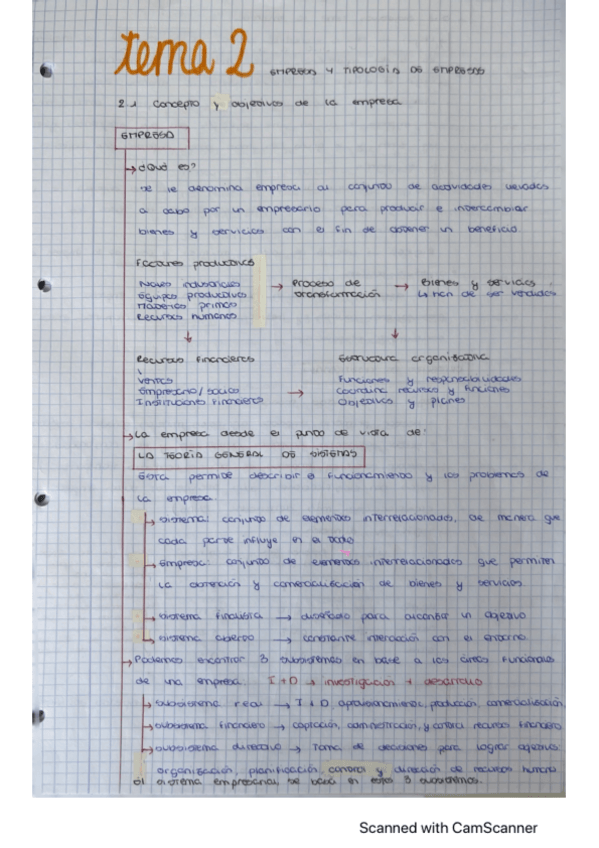 tema 2 Empresa y tipología de empresas
2.1 Concepto y objetivos de la empresa
EMPRESA
→ ¿Qué es?
Se le denomina empresa al conjunto de actividades llevadas
a cabo por un empresario para producir e intercambiar
bienes y servicios con el fin de obtener un beneficio.
Factores productivos
Naves industriales → Proceso de → Bienes y servicios.
Equipos productivos transformación ↳ han de ser vendidos
Materias primas
Recursos humanos
↓ ↓
Recursos financieros Estructura organizativa
Ventas Funciones y responsabilidades
Empresario/socios → Coordina recursos y funciones
Instituciones financieras Objetivos y planes
→ La empresa desde el punto de vista de:
LA TEORÍA GENERAL DE SISTEMAS
Esta permite describir el funcionamiento y los problemas de
la empresa
→ Sistema: conjunto de elementos interrelacionados, de manera que
cada parte influye en el todo
→ Empresa: conjunto de elementos interrelacionados que permiten
la obtención y comercialización de bienes y servicios
→ Sistema finalista → diseñado para alcanzar un objetivo
→ Sistema abierto → constante interacción con el entorno
→ Podemos encontrar 3 subsistemas en base a las áreas funcionales
de una empresa: I+D → investigación + desarrollo
→ Subsistema real → I+D, aprovisionamiento, producción, comercialización,
→ Subsistema financiero → captación, administración, y control recursos financieros
→ Subsistema directivo → Toma de decisiones para lograr objetivos:
organización, planificación, control y dirección de recursos humanos
El sistema empresarial se basa en estos 3 subsistemas.
Scanned with CamScanner